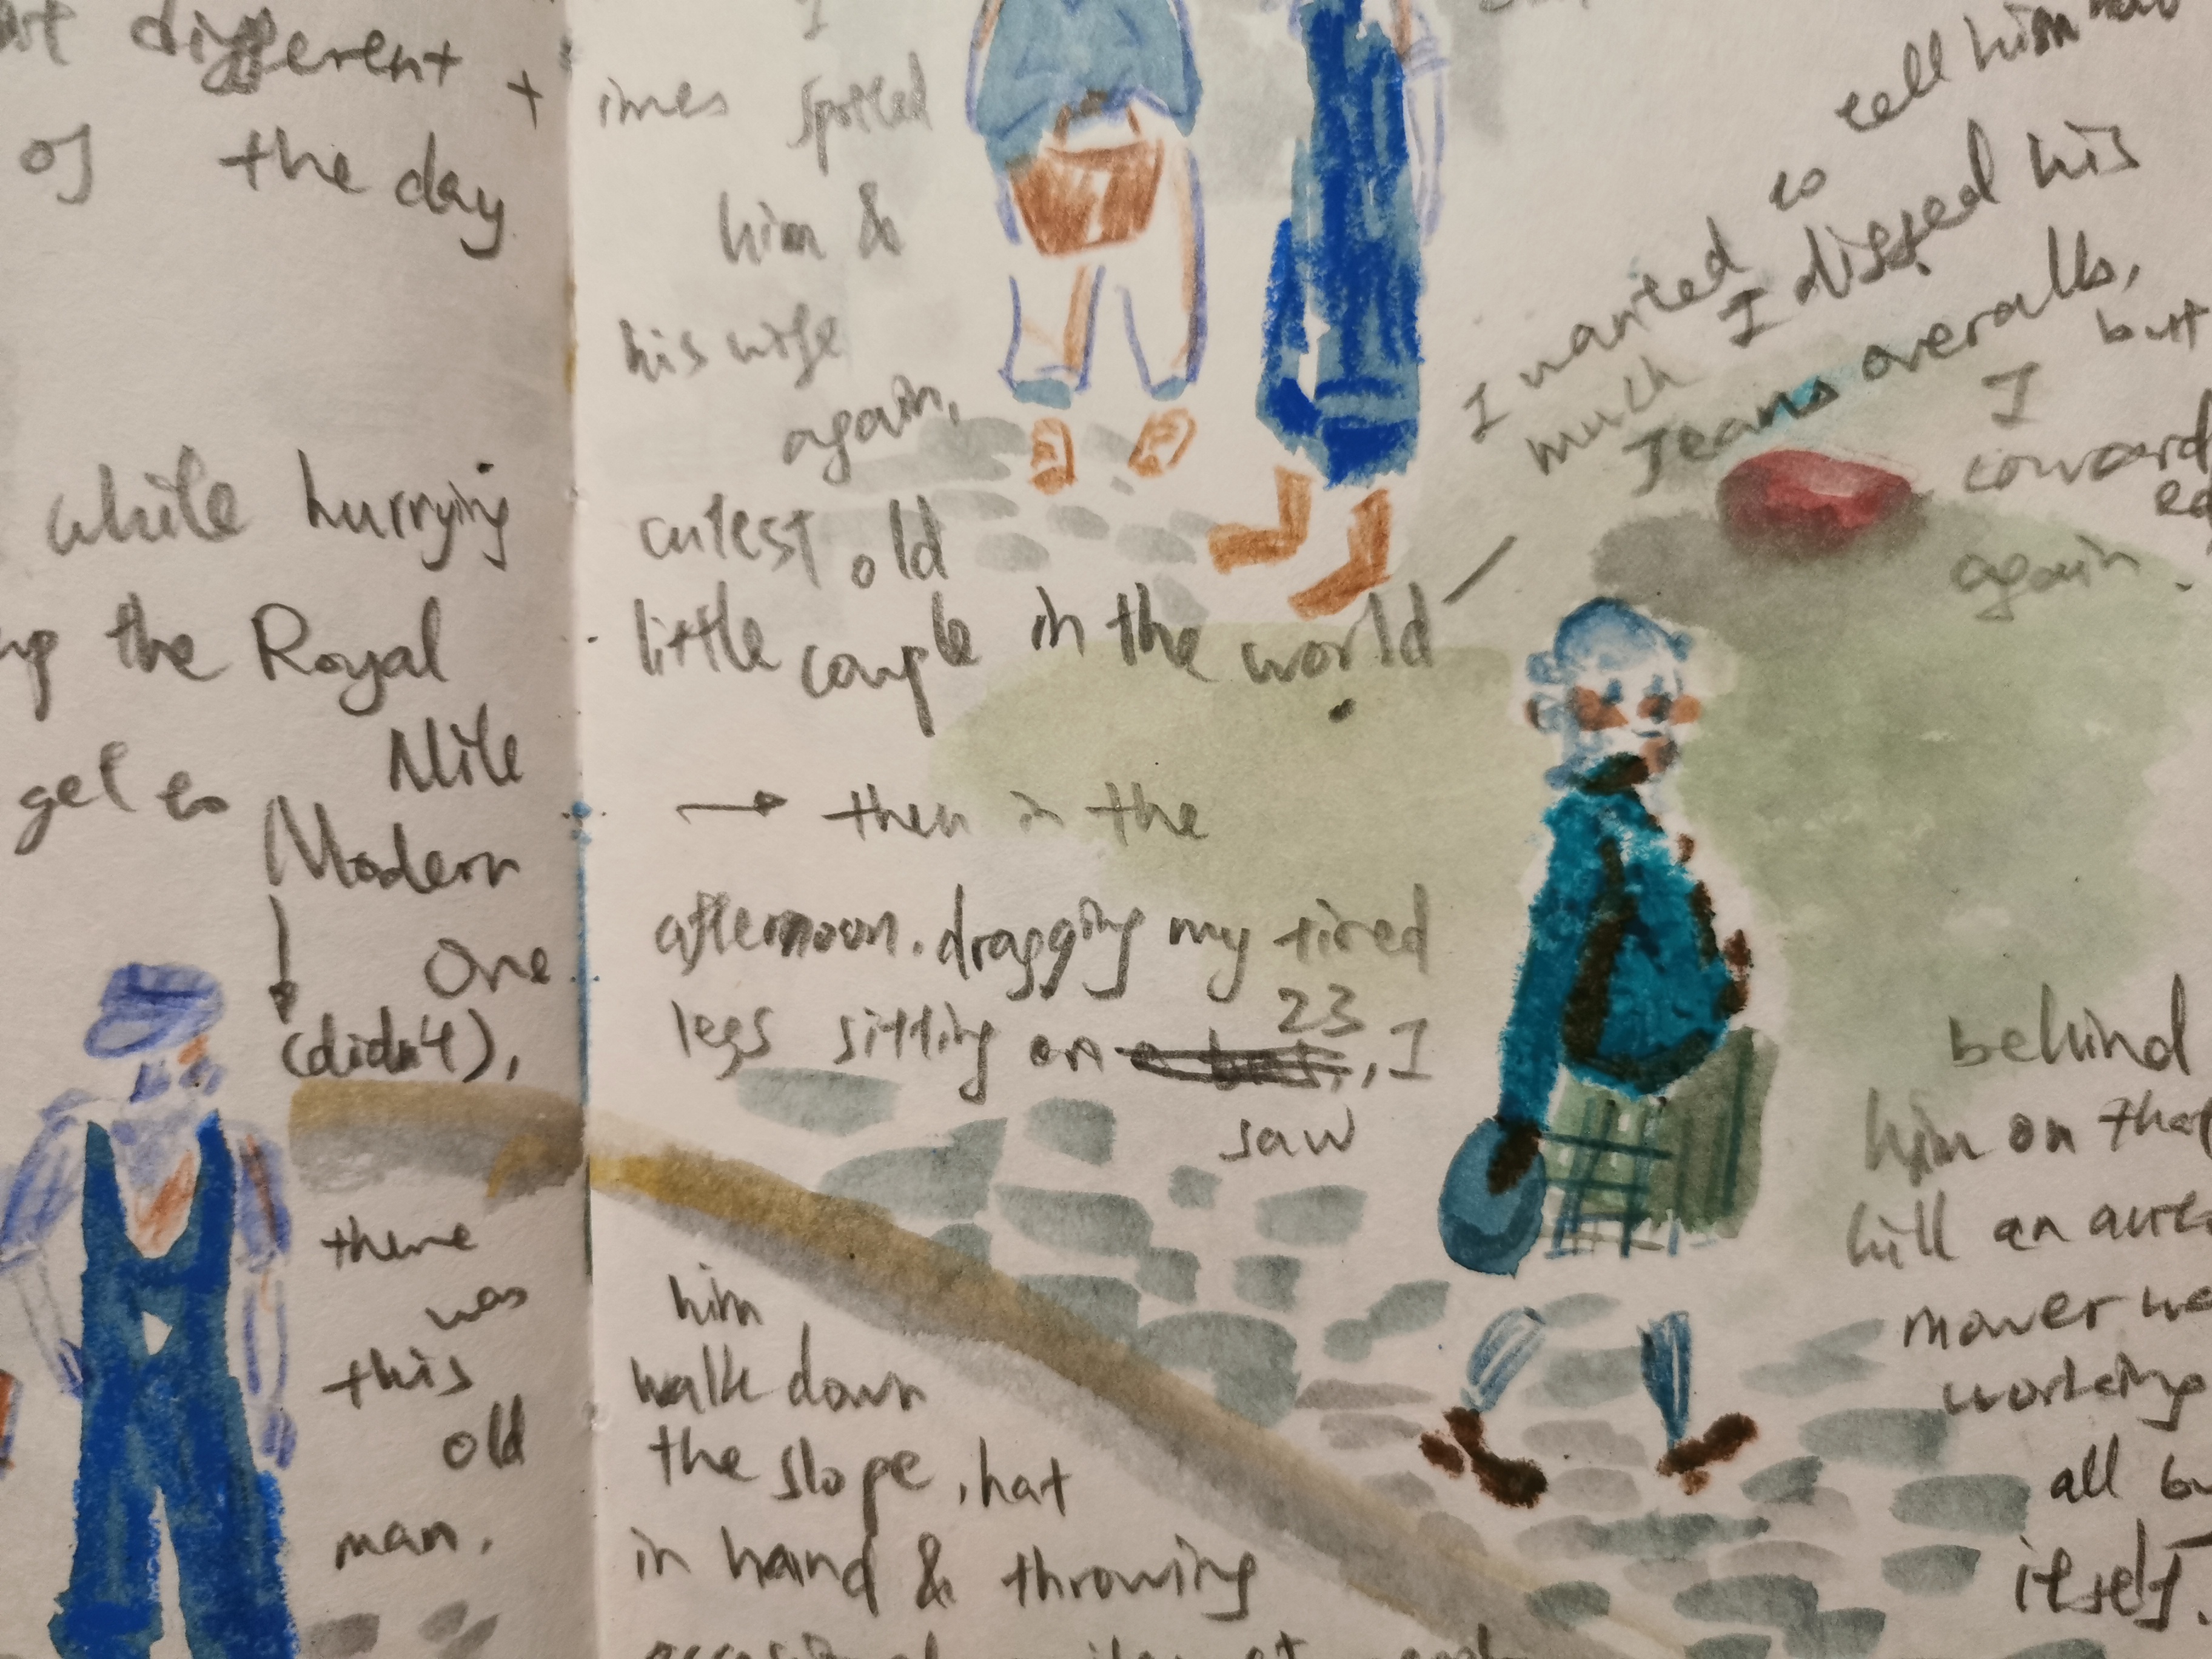 different t
of the day
while hurrying
the Royal
Mile
get to
Modern
One
(didn't),
there
was
this
old
man.
I
imes spotted
him &
his wife
again,
cutest old
little couple in the world
→ then in the
afternoon. dragging my tired
legs sitting on 23, I
saw
him
walk down
the slope, hat
in hand & throwing
I wanted to tell him
much I digged his
Jeans overalls,
but
I
coward
again.
behind
him on that
hill an
mower
working
all
itself.